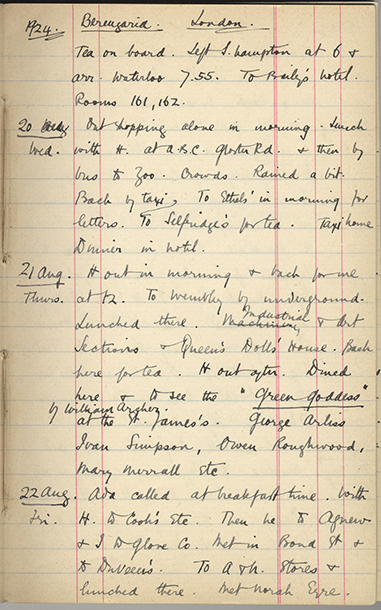 1924. Berengaria. London.
Tea on board. Left S.hampton at 6 &
arr. Waterloo 7.55. To Baily's hotel.
Rooms 161, 162.
20 Aug Out shopping alone in morning. Lunch
Wed. with H. at A.B.C. Gloster Rd. & then by
bus to Zoo. Crowds. Rained a bit.
Back by taxi. To Ethels' in morning for
letters. To Selfridge's for tea. Taxi home
Dinner in hotel.
21 Aug. H out in morning & back for me
Thurs. at 12. To Wembly by underground.
Industrial
Lunched there. Machinery & Art
Sections & Queen's Dolls' House. Back
here for tea. H out after. Dined
here & to see the "Green Goddess"
by William Archer.
at the St. James's. George Arliss
Ivan Simpson, Owen Roughwood,
Mary Merrall Etc.
22 Aug. Ada called at breakfast time. With
Fri. H. to Cook's Etc. Then he to Agnew
& I to Glove Co. Met in Bond St &
to Duveen's. To A & N. Stores &
lunched there. Met Norah Eyre.